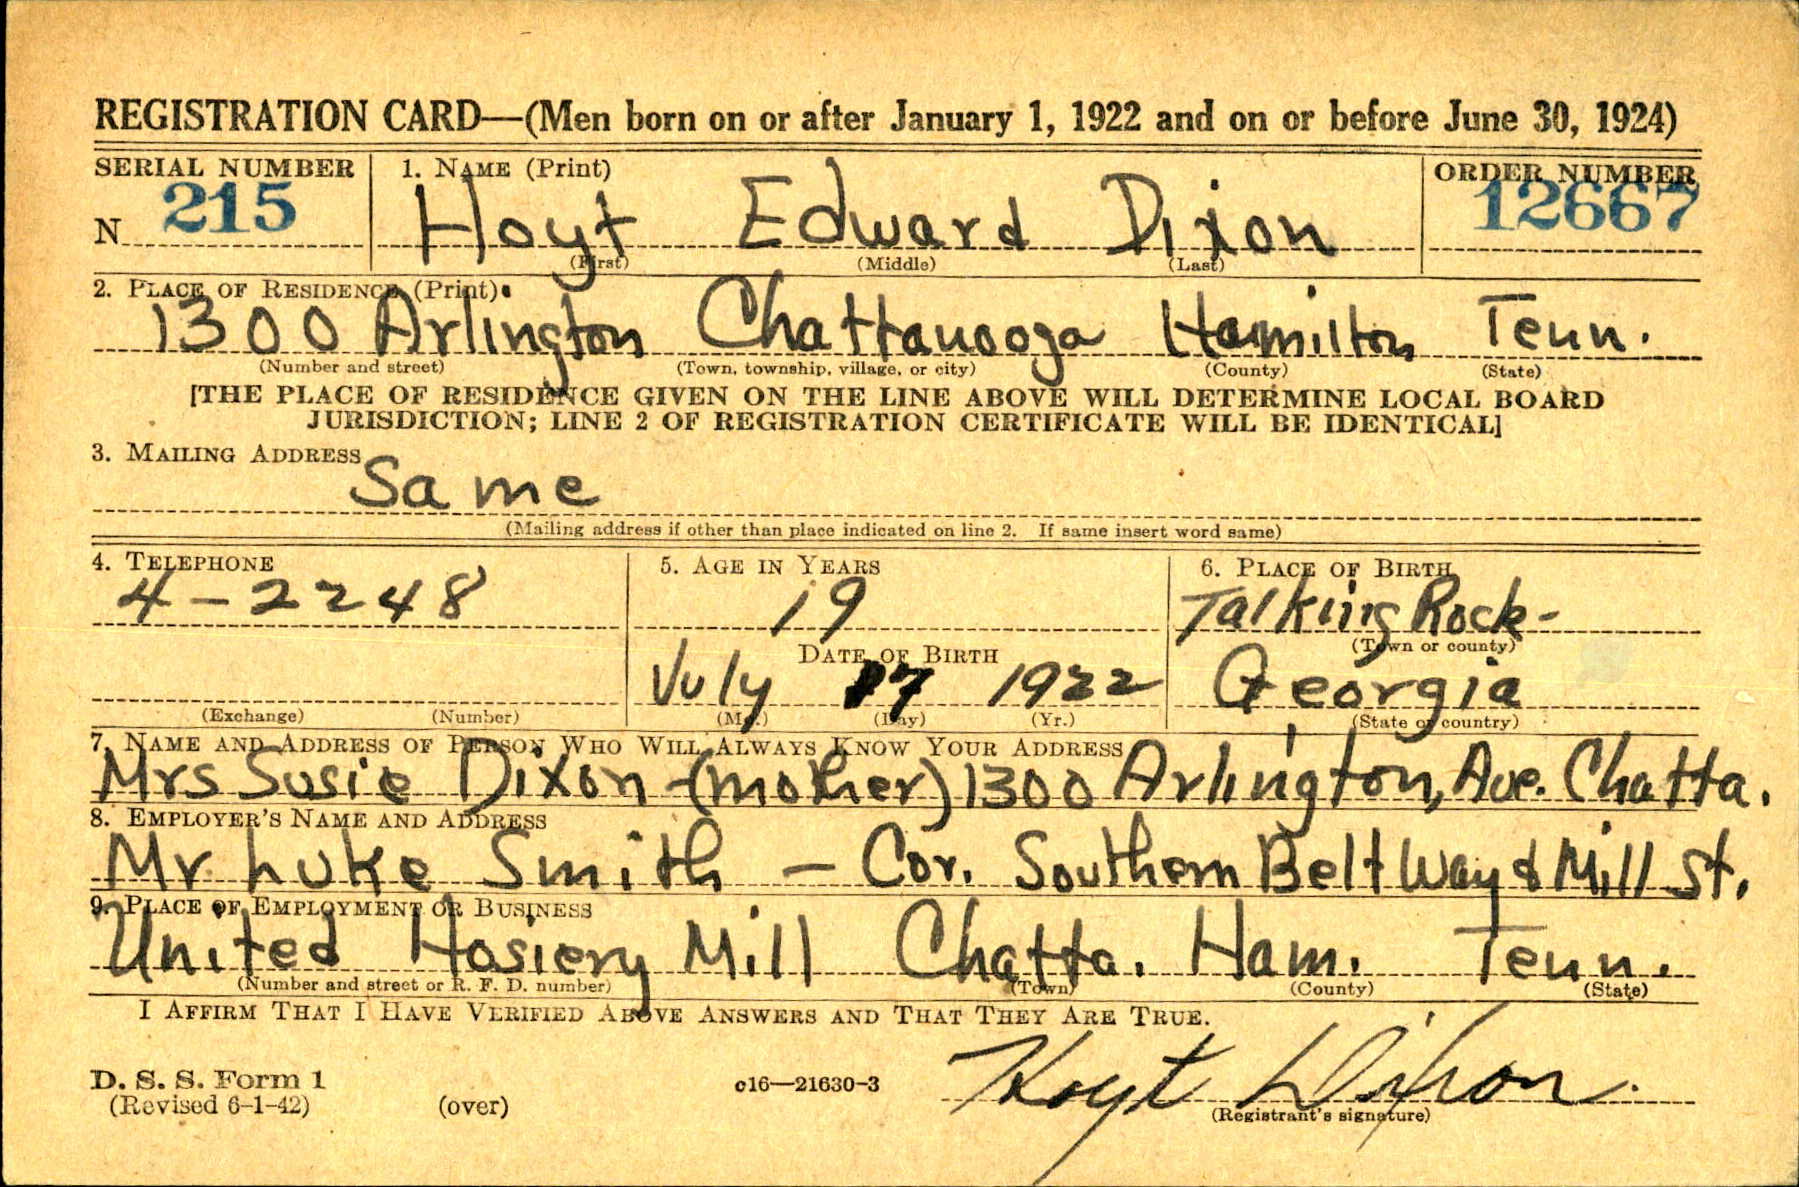 REGISTRATION CARD—(Men born on or after January 1, 1922 and on or before June 30, 1924)
SERIAL NUMBER 1. NAME (Print) ORDER NUMBER
N 215 Hoyt Edward Dixon 12667
(First) (Middle) (Last)
2. PLACE OF RESIDENCE (Print)
1300 Arlington Chattanooga Hamilton Tenn.
(Number and street) (Town, township, village, or city) (County) (State)
[THE PLACE OF RESIDENCE GIVEN ON THE LINE ABOVE WILL DETERMINE LOCAL BOARD
JURISDICTION; LINE 2 OF REGISTRATION CERTIFICATE WILL BE IDENTICAL]
3. MAILING ADDRESS
Same
(Mailing address if other than place indicated on line 2. If same insert word same)
4. TELEPHONE 5. AGE IN YEARS 6. PLACE OF BIRTH
4-2248 19 Talking Rock-
(Town or county)
DATE OF BIRTH
July 17 1922 Georgia
(Exchange) (Number) (Mo.) (Day) (Yr.) (State or country)
7. NAME AND ADDRESS OF PERSON WHO WILL ALWAYS KNOW YOUR ADDRESS
Mrs Susie Dixon-(mother) 1300 Arlington, Ave. Chatta.
8. EMPLOYER'S NAME AND ADDRESS
Mr. Luke Smith - Cor. Southern Belt Way & Mill St.
9. PLACE OF EMPLOYMENT OR BUSINESS
United Hosiery Mill Chatta. Ham. Tenn.
(Number and street or R. F. D. number) (Town) (County) (State)
I AFFIRM THAT I HAVE VERIFIED ABOVE ANSWERS AND THAT THEY ARE TRUE.
D. S. S. Form 1
(Revised 6-1-42) (over) c16—21630-3 Hoyt Dixon.
(Registrant's signature)